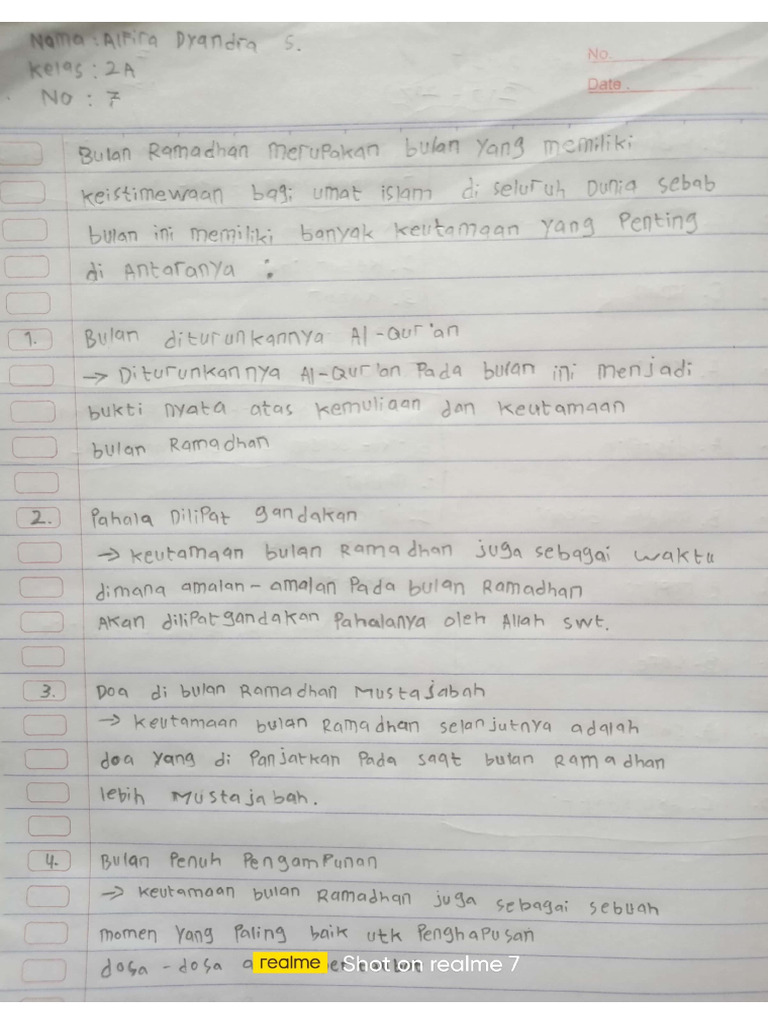 Nama : Alfira Dyandra S.
Kelas : 2A
No : 7
No.
Date.
Bulan Ramadhan merupakan bulan yang memiliki
keistimewaan bagi umat islam di seluruh Dunia sebab
bulan ini memiliki banyak keutamaan yang Penting
di Antaranya :
1. Bulan diturunkannya Al-Qur'an
→ Diturunkannya Al-Qur'an Pada bulan ini menjadi
bukti nyata atas kemuliaan dan keutamaan
bulan Ramadhan
2. Pahala Dilipat gandakan
→ keutamaan bulan Ramadhan juga sebagai waktu
dimana amalan-amalan Pada bulan Ramadhan
Akan dilipatgandakan Pahalanya oleh Allah swt.
3. Doa di bulan Ramadhan Mustajabah
→ keutamaan bulan Ramadhan selanjutnya adalah
doa yang di Panjatkan Pada saat bulan Ramadhan
lebih Mustajabah.
4. Bulan Penuh Pengampunan
→ keutamaan bulan Ramadhan juga sebagai sebuah
momen yang Paling baik utk Penghapusan
dosa-dosa
realme Shot on realme 7